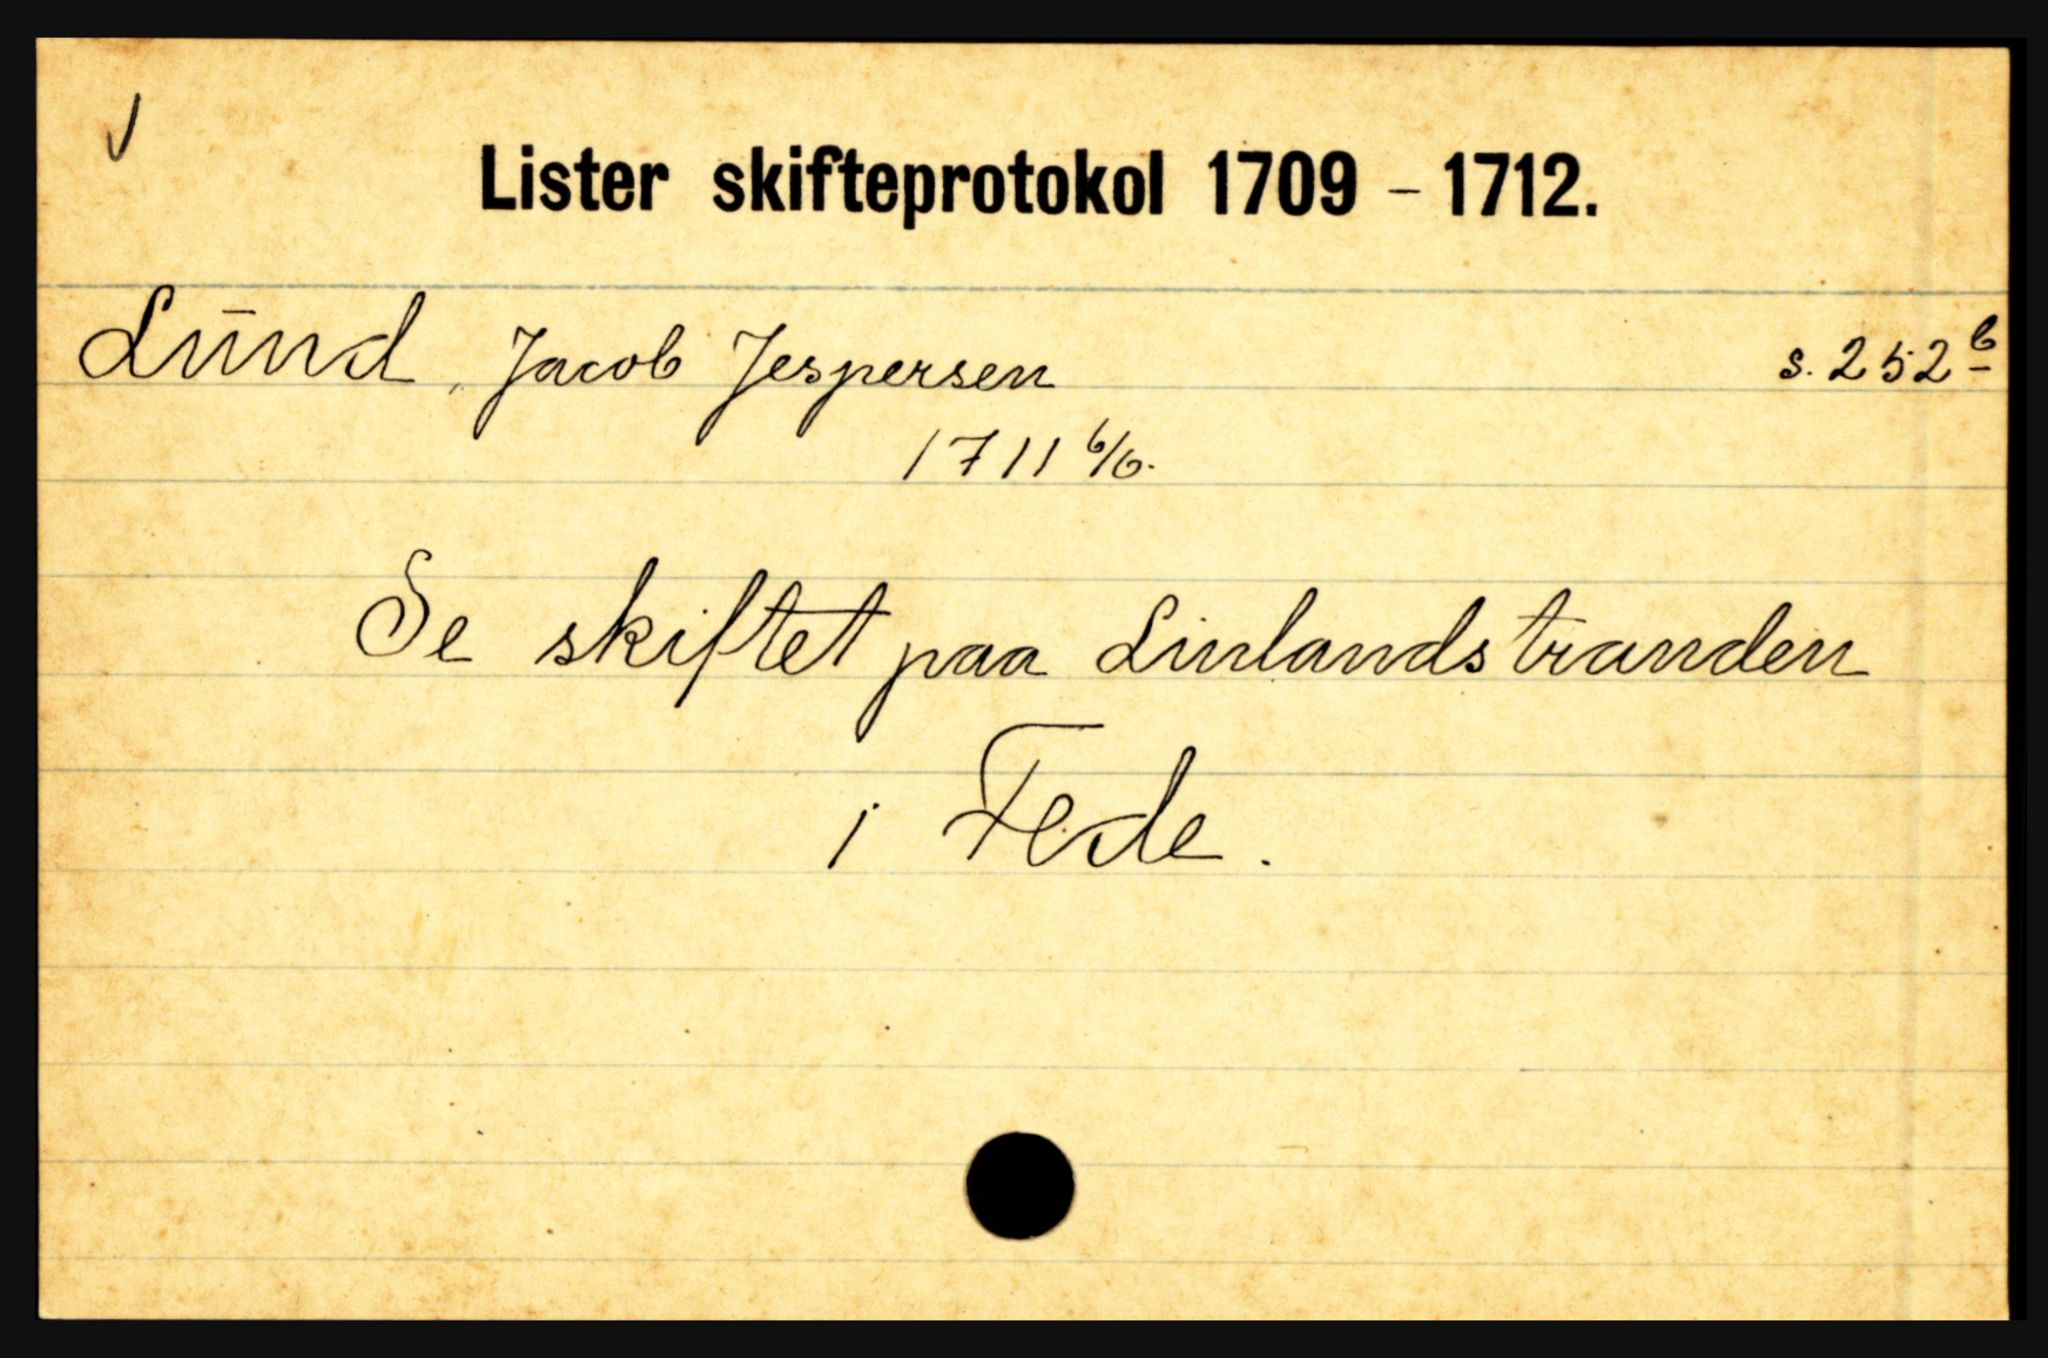 Lister skifteprotokol 1709 - 1712.
Lūnd, Jacob Jespersen s. 252 b
1711 6/6.
Se skiftet paa Linlandstranden
i Fede.